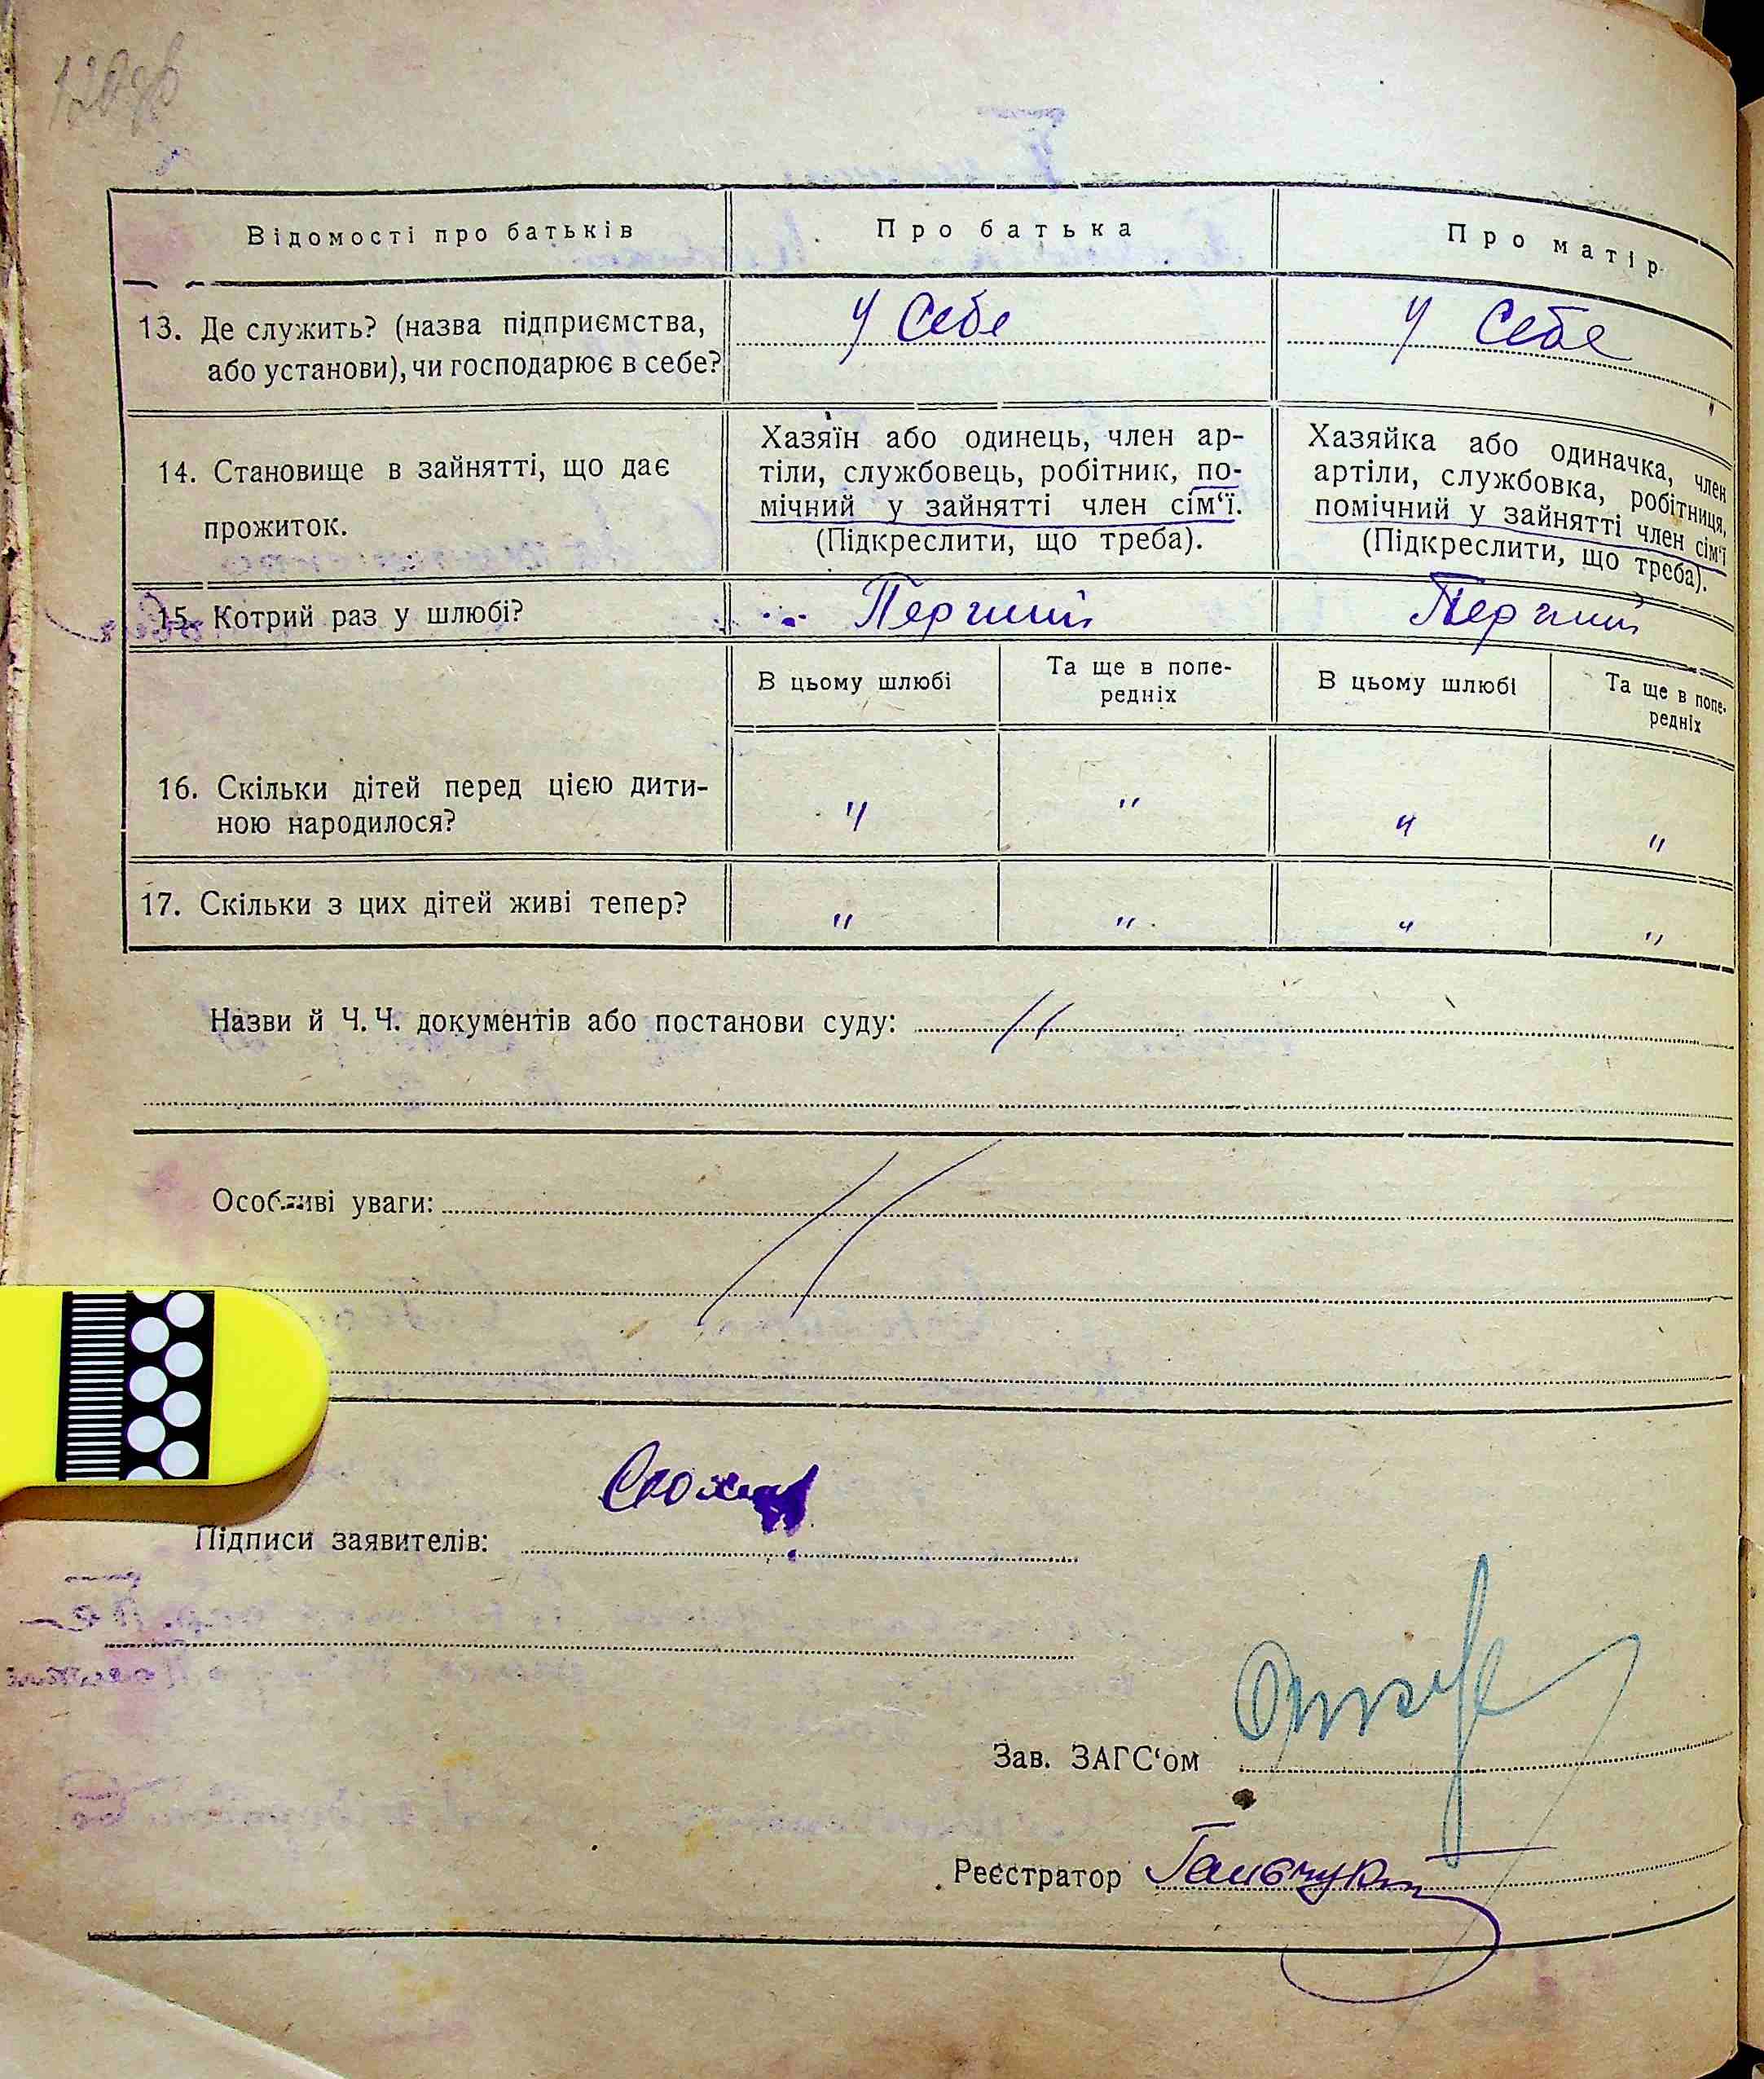 Відомості про батьків
Про батька
Про матір
13. Де служить? (назва підприємства, або установи), чи господарює в себе?
у себе
у себе
14. Становище в зайнятті, що дає прожиток.
Хазяїн або одинець, член ар-
тіли, службовець, робітник, по-
мічний у зайнятті член сім‘ї.
(Підкреслити, що треба).
Хазяйка або одиначка, член
артіли, службовка, робітниця,
помічний у зайнятті член сім‘ї
(Підкреслити, що треба).
15. Котрий раз у шлюбі?
Перший
Перший
В цьому шлюбі
Та ще в попе-
редніх
В цьому шлюбі
Та ще в попе-
редніх
16. Скільки дітей перед цією дити-
ною народилося?
"
"
"
"
17. Скільки з цих дітей живі тепер?
"
"
"
"
Назви й Ч.Ч. документів або постанови суду: //
Особливі уваги: //
Підписи заявителів:
Зав. ЗАГС‘ом
Реєстратор